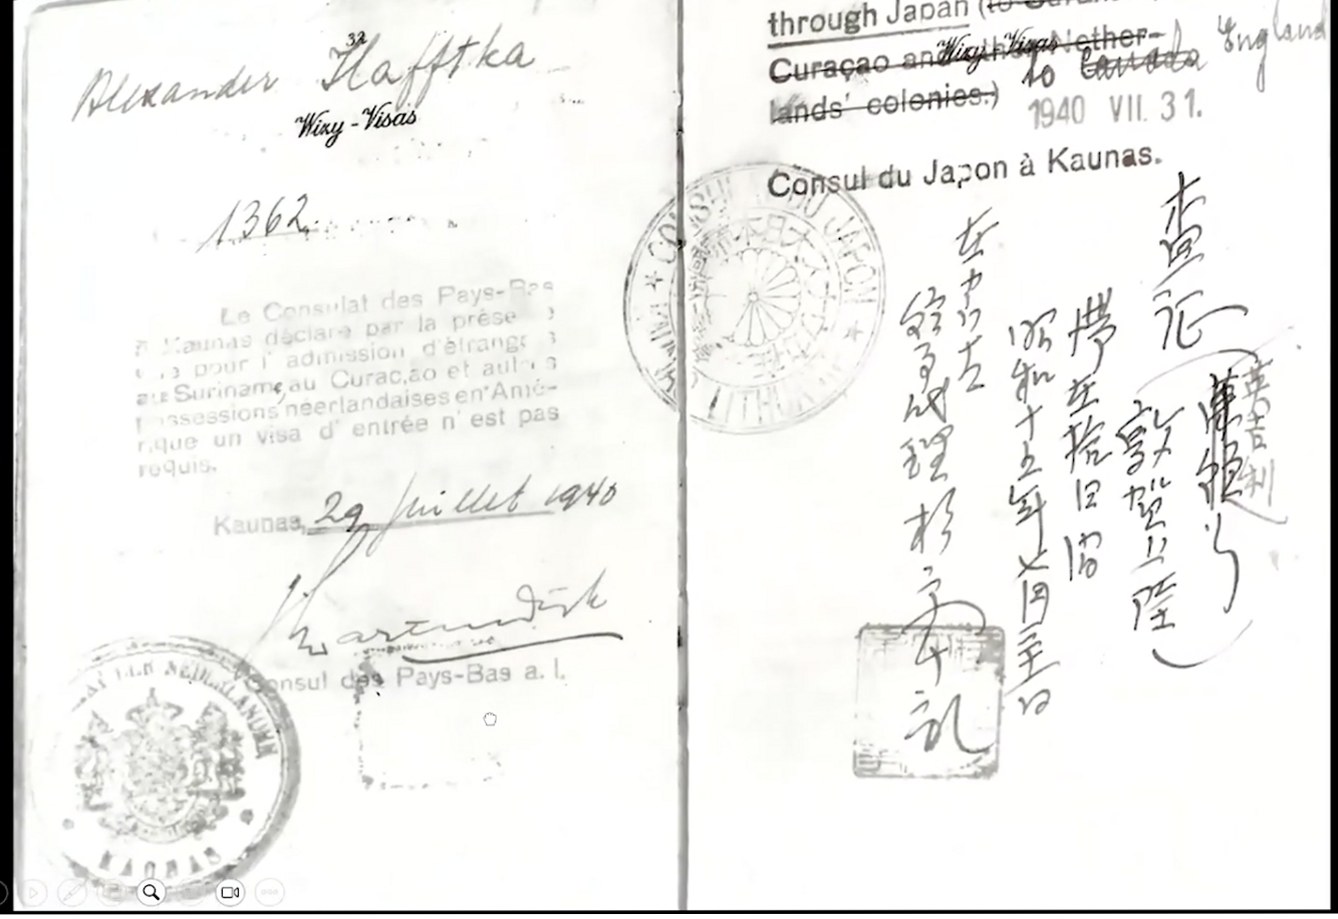 32
Alexander Hafftka
Wizy - Visas
1362
Le Consulat des Pays-Bas
à Kaunas déclare par la prése
pour l'admission d'étrang
au Suriname, au Curaçao et autres
possessions néerlandaises en Amé-
rique un visa d'entrée n'est pas
requis.
Kaunas, 29 Juillet 1940
Consul des Pays-Bas a. I.
KAUNAS
through Japan (to
Curaçao and Nether-
Wizy - Visas
lands' colonies.) to Canada England
1940 VII. 31.
Consul du Japon à Kaunas.
CONSULAT DU JAPON
査証
英吉利行
敦賀上陸
滞在拾日間
昭和十五年七月
在カウナス
領事代理杉原千畝